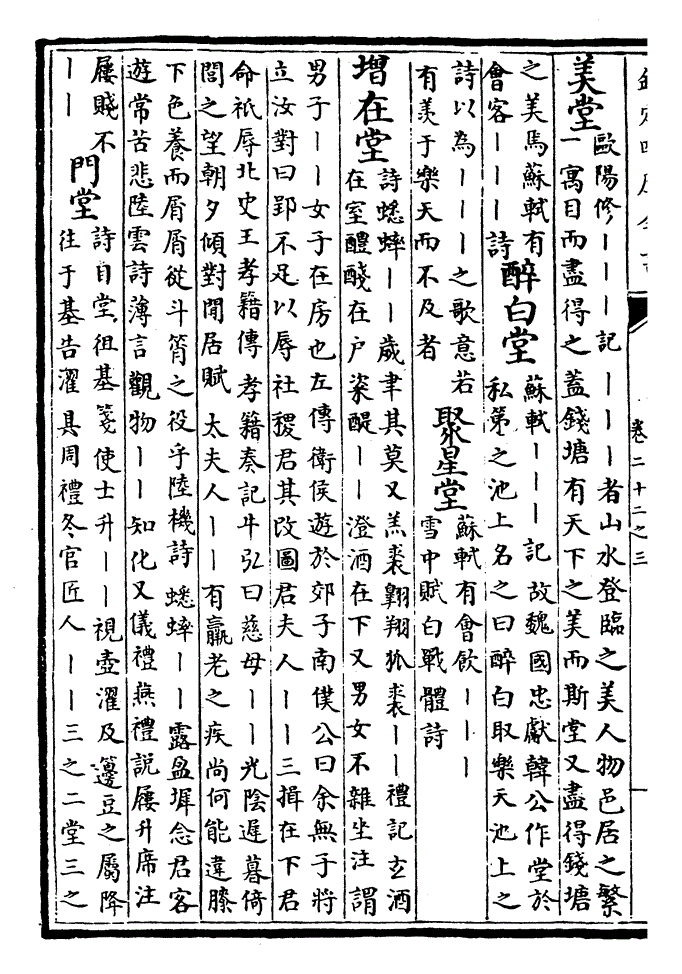 卷二十二之三
美堂
歐陽修｜｜｜記　｜｜｜者山水登臨之美人物邑居之繁
一寓目而盡得之蓋錢塘有天下之美而斯堂又盡得錢塘
之美馬蘇軾有
會客｜｜｜詩
醉白堂
蘇軾｜｜｜記　故魏國忠獻韓公作堂於
私第之池上名之曰醉白取樂天池上之
詩以為｜｜｜之歌意若
有羡于樂天而不及者
聚星堂
蘇軾有會飲｜｜｜
雪中賦白戰體詩
增在堂
詩蟋蟀｜｜歲聿其莫又羔裘翺翔狐裘｜｜禮記玄酒
在室醴醆在户粢醍｜｜澄酒在下又男女不雜坐注謂
男子｜｜女子在房也左傳衛侯遊於郊子南僕公曰余無子將
立汝對曰郢不足以辱社稷君其改圖君夫人｜｜三揖在下君
命祇辱北史王孝籍傳　孝籍奏記牛弘曰慈母｜｜光陰遲暮倚
閭之望朝夕傾對閒居賦　太夫人｜｜有羸老之疾尚何能違膝
下色養而屑屑從斗筲之役乎陸機詩　蟋蟀｜｜露盈墀念君客
遊常苦悲陸雲詩薄言觀物｜｜知化又儀禮燕禮説屨升席注
屨賤不
｜｜
門堂
詩自堂徂基箋使士升｜｜視壺濯及籩豆之屬降
往于基告濯具周禮冬官匠人｜｜三之二堂三之